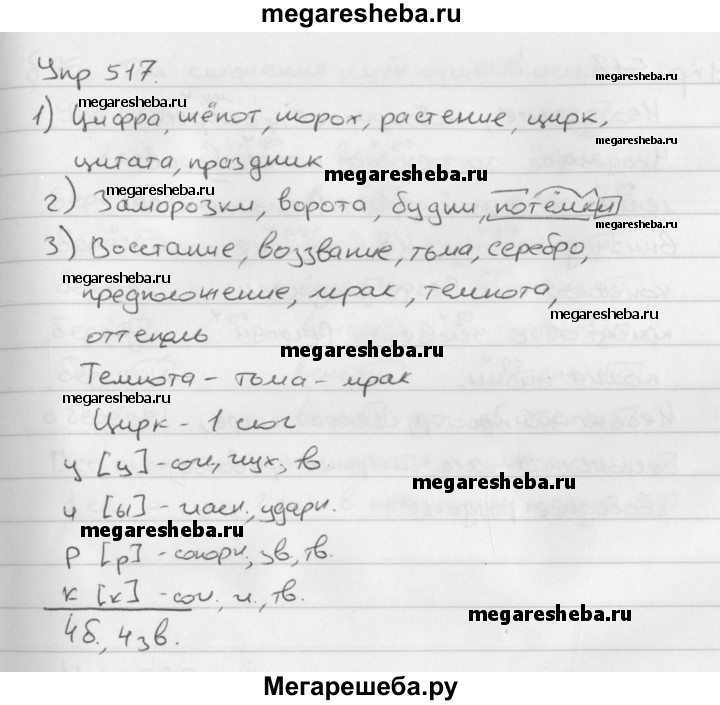 megaresheba.ru
Упр 517.
megaresheba.ru
megaresheba.ru
1) Цифра, шёпот, шорох, растение, цирк,
megaresheba.ru
цитата, праздник
megaresheba.ru
megaresheba.ru
2) Заморозки, ворота, будни, потёмки
3) Восстание, воззвание, тьма, серебро,
megaresheba.ru
предположение, мрак, темнота,
megaresheba.ru
оттепель
megaresheba.ru
Темнота - тьма - мрак
megaresheba.ru
Цирк - 1 слог
ц [ц] - сог., глух., тв
megaresheba.ru
и [ы] - гласн., ударн.
megaresheba.ru
р [р] - сонорн, зв, тв.
к [к] - сог., г., тв.
megaresheba.ru
4б., 4зв.
Мегарешеба.ру